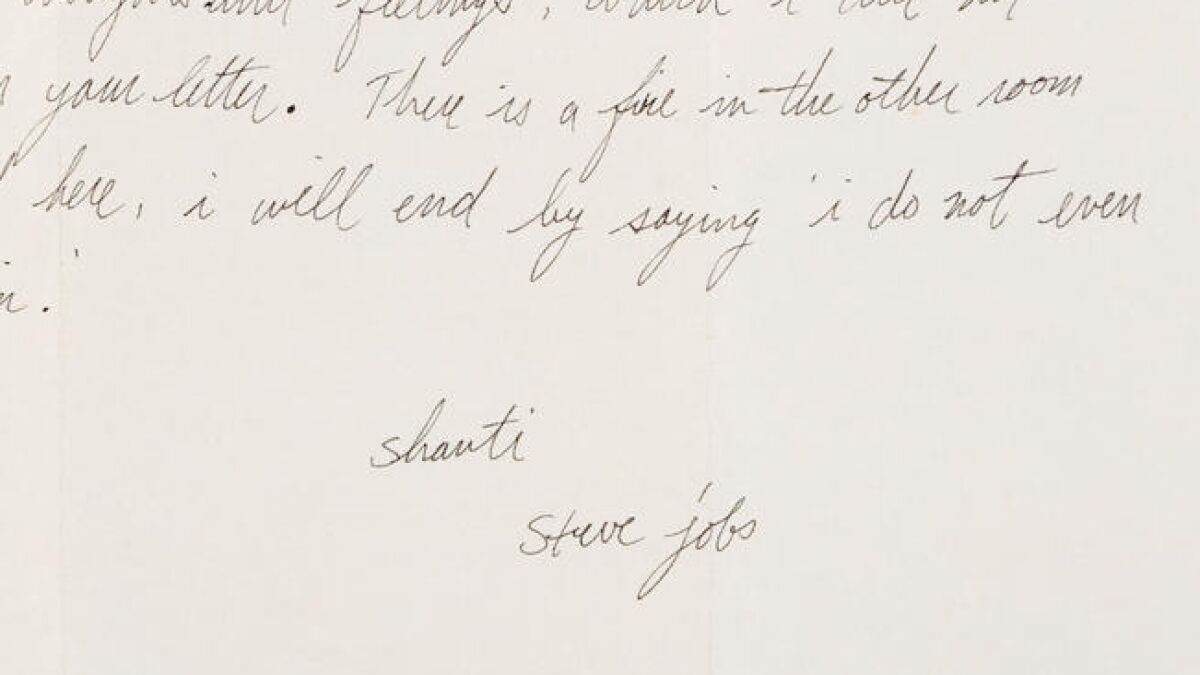 feelings,
your letter. There is a fire in the other room
here, i will end by saying 'i do not even
.'
shanti
steve jobs